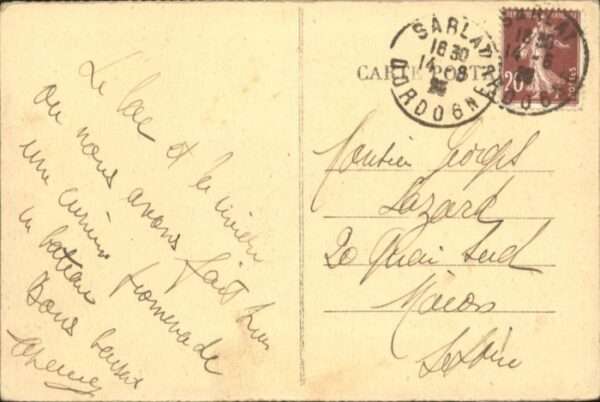 SARLAT
16 30
14 - 8
DORDOGNE
SARLAT
16 30
14 - 8
DORDOGNE
20c
POSTES
CARTE POSTALE
Le lac et la rivière
où nous avons fait hier
une curieuse promenade
en bateau
Bons baisers
Monsieur Georges
Lazard
20 Quai Sud
Mâcon
S et Loire